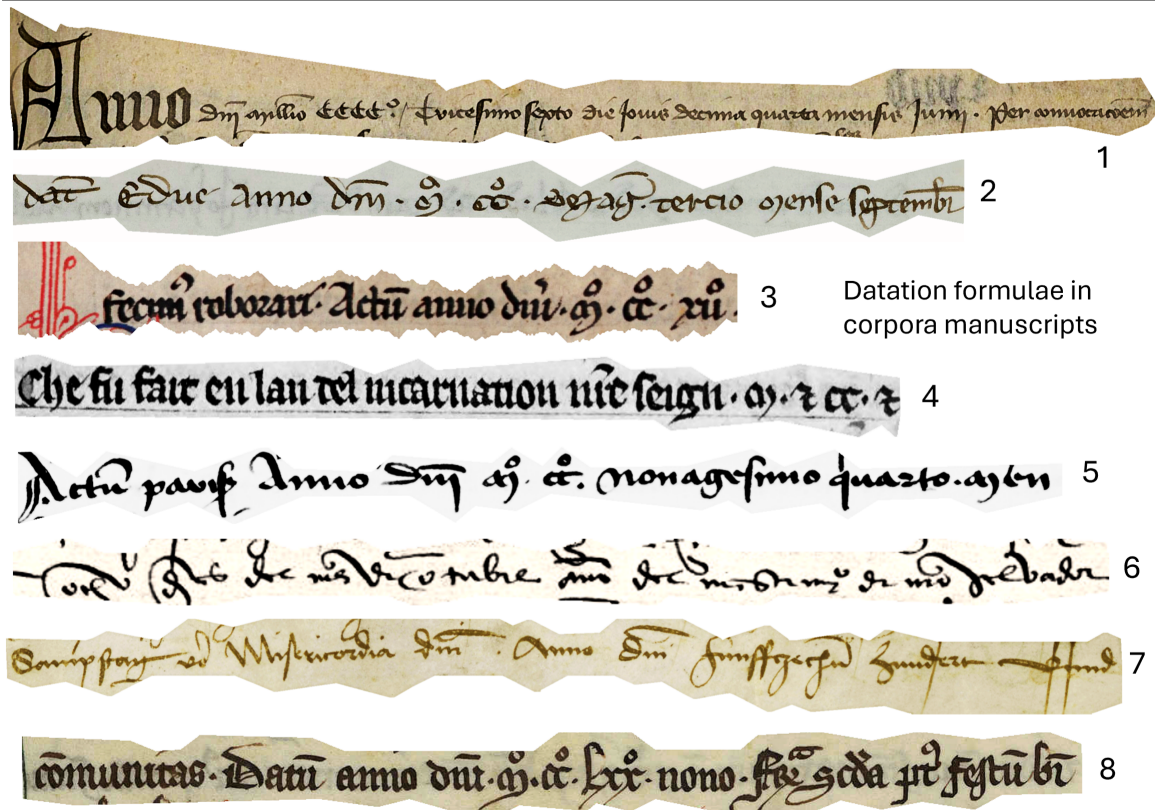 Anno dnī millīo CCCC° / Cvicesimo septo die Jouis decima quarta mensis Junii . Per conuocacōem
1
dat̄ Edue anno dn̄i . m° . cc° . tercio mense septembr̄
2
fecim9 roborari . Actū anno dn̄i . m° . cc° . xu° .
3
Datation formulae in
corpora manuscripts
Che fu fait en lan del incarnation nr̄e seign . m . ⁊ cc . ⁊
4
Actū paris Anno dn̄i m° . cc° . nonagesimo quarto . men
5
dias del mes de octubre año del de nr̄o saluador
6
vō Misericordia dn̄i . Anno dn̄i funffzechn̄ hundert vnd
7
cōmunitas . Datū anno dn̄i . m° . cc° . lxx° . nono . scd̄a pt9 festū bī
8